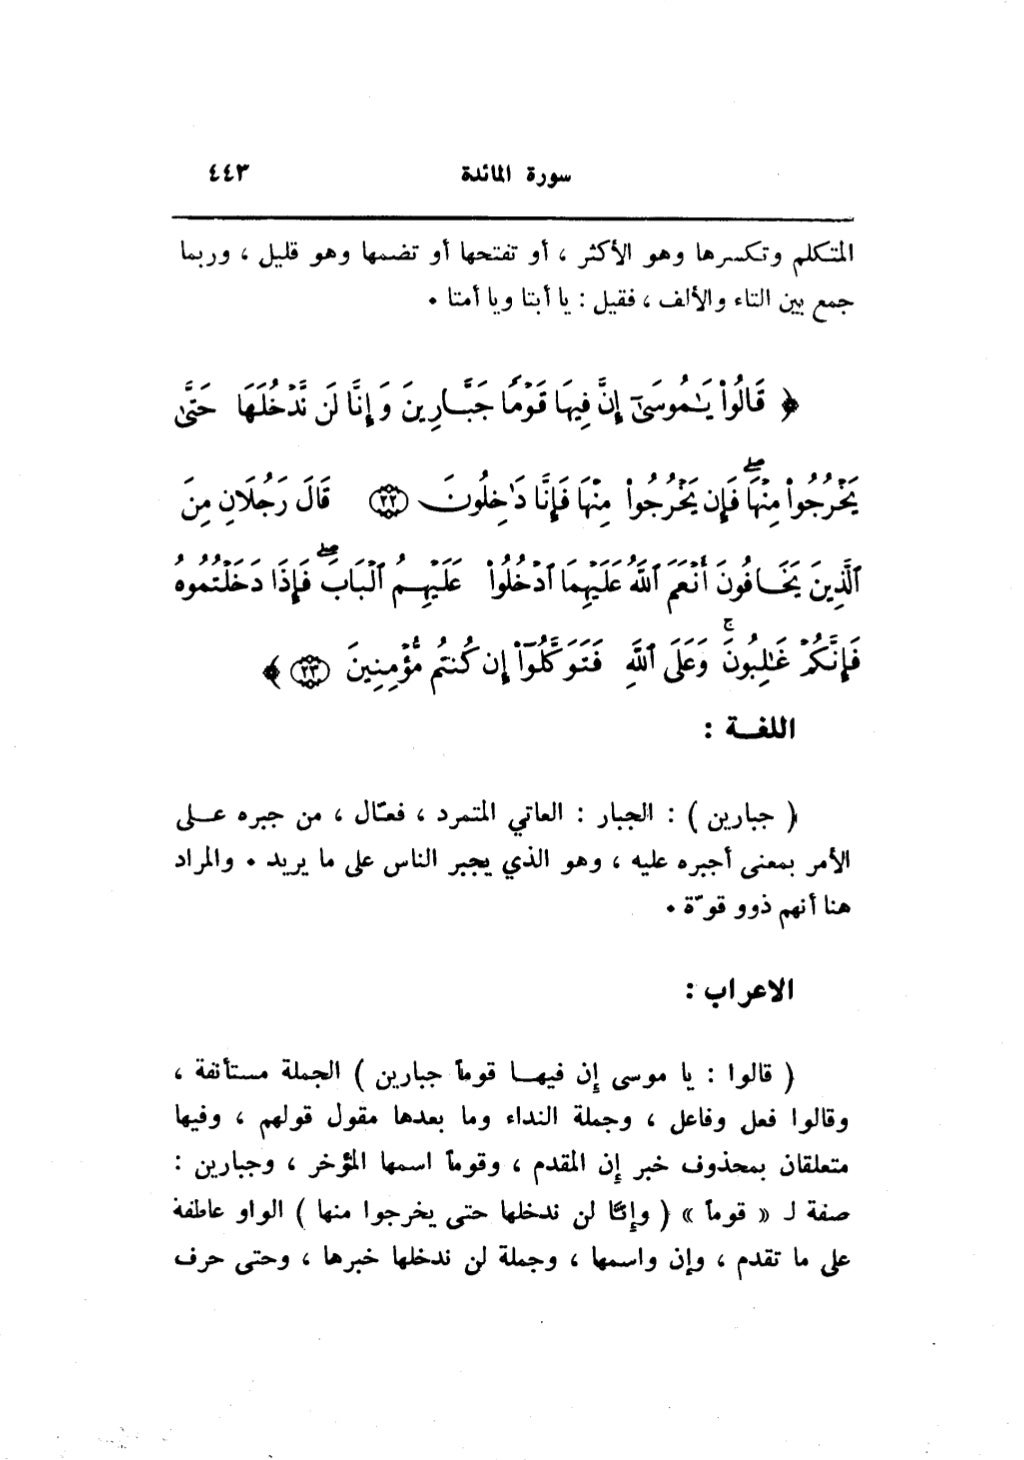 سورة المائدة ٤٤٣
المتكلم وتكسرها وهو الأكثر ، أو تفتحها أو تضمها وهو قليل ، وربما
جمع بين التاء والألف ، فقيل : يا أبتا ويا أمتا .
﴿ قَالُوا۟ يَـٰمُوسَىٰٓ إِنَّ فِيهَا قَوْمًا جَبَّارِينَ وَإِنَّا لَن نَّدْخُلَهَا حَتَّىٰ
يَخْرُجُوا۟ مِنْهَا ۖ فَإِن يَخْرُجُوا۟ مِنْهَا فَإِنَّا دَٰخِلُونَ ٢٢ قَالَ رَجُلَانِ مِنَ
ٱلَّذِينَ يَخَافُونَ أَنْعَمَ ٱللَّهُ عَلَيْهِمَا ٱدْخُلُوا۟ عَلَيْهِمُ ٱلْبَابَ ۖ فَإِذَا دَخَلْتُمُوهُ
فَإِنَّكُمْ غَـٰلِبُونَ ۚ وَعَلَى ٱللَّهِ فَتَوَكَّلُوٓا۟ إِن كُنتُم مُّؤْمِنِينَ ٢٣ ﴾
اللغـة :
( جبارين ) : الجبار : العاتي المتمرد ، فعّال ، من جبره عـلى
الأمر بمعنى أجبره عليه ، وهو الذي يجبر الناس على ما يريد . والمراد
هنا أنهم ذوو قوّة .
الاعراب :
( قالوا : يا موسى إِن فيهـا قوماً جبارين ) الجملة مستأنفة ،
وقالوا فعل وفاعل ، وجملة النداء وما بعدها مقول قولهم ، وفيها
متعلقان بمحذوف خبر إِن المقدم ، وقوماً اسمها المؤخر ، وجبارين :
صفة لـ « قوماً » ( وإِنّا لن ندخلها حتى يخرجوا منها ) الواو عاطفة
على ما تقدم ، وإن واسمها ، وجملة لن ندخلها خبرها ، وحتى حرف